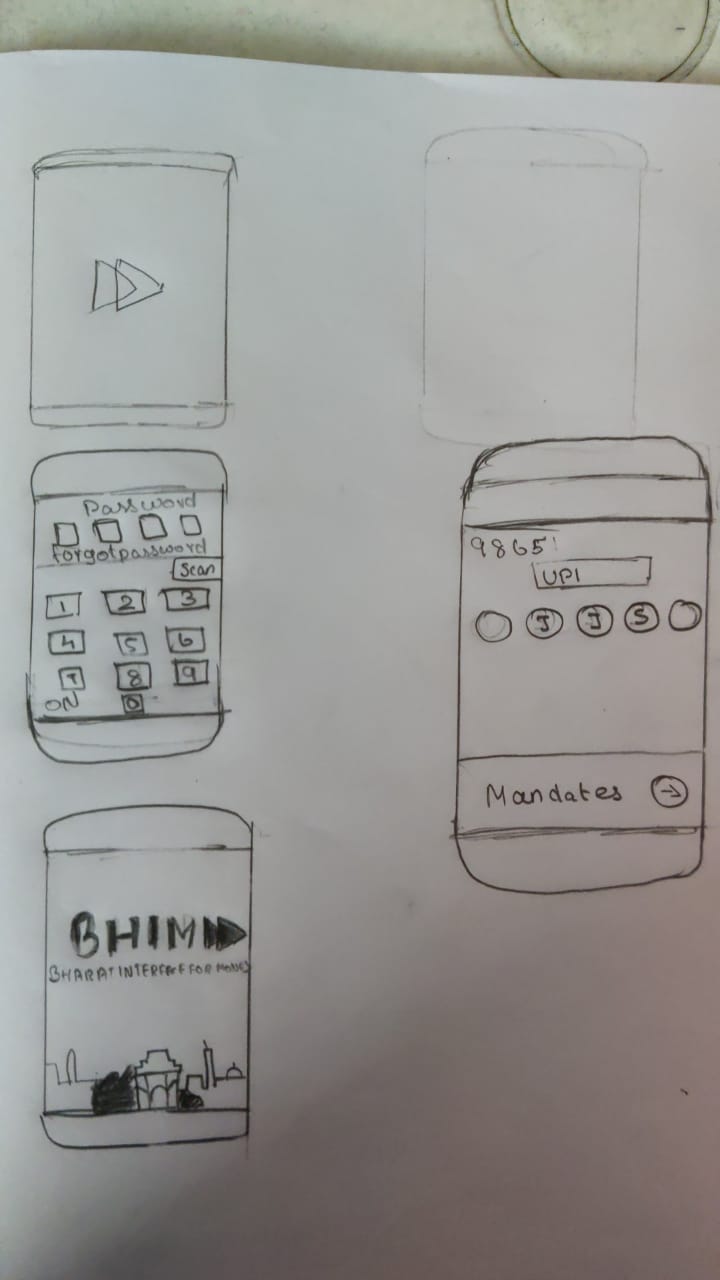 Password
forgotpassword
Scan
1 2 3
4 5 6
7 8 9
ON 0
BHIM
BHARAT INTERFACE FOR MONEY
9865
UPI
J J S
Mandates